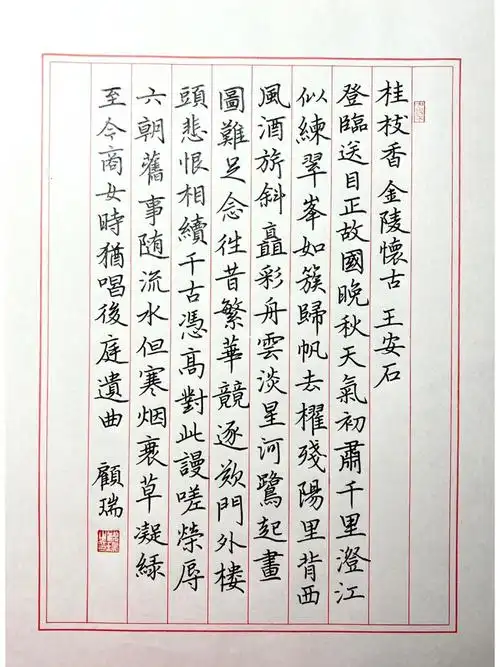 桂枝香 金陵懷古 王安石
登臨送目正故國晚秋天氣初肅千里澄江
似練翠峯如簇歸帆去櫂殘陽里背西
風酒旂斜矗彩舟雲淡星河鷺起畫
圖難足念往昔繁華競逐歎門外樓
頭悲恨相續千古憑高對此謾嗟榮辱
六朝舊事随流水但寒烟衰草凝緑
至今商女時猶唱後庭遺曲 顧瑞